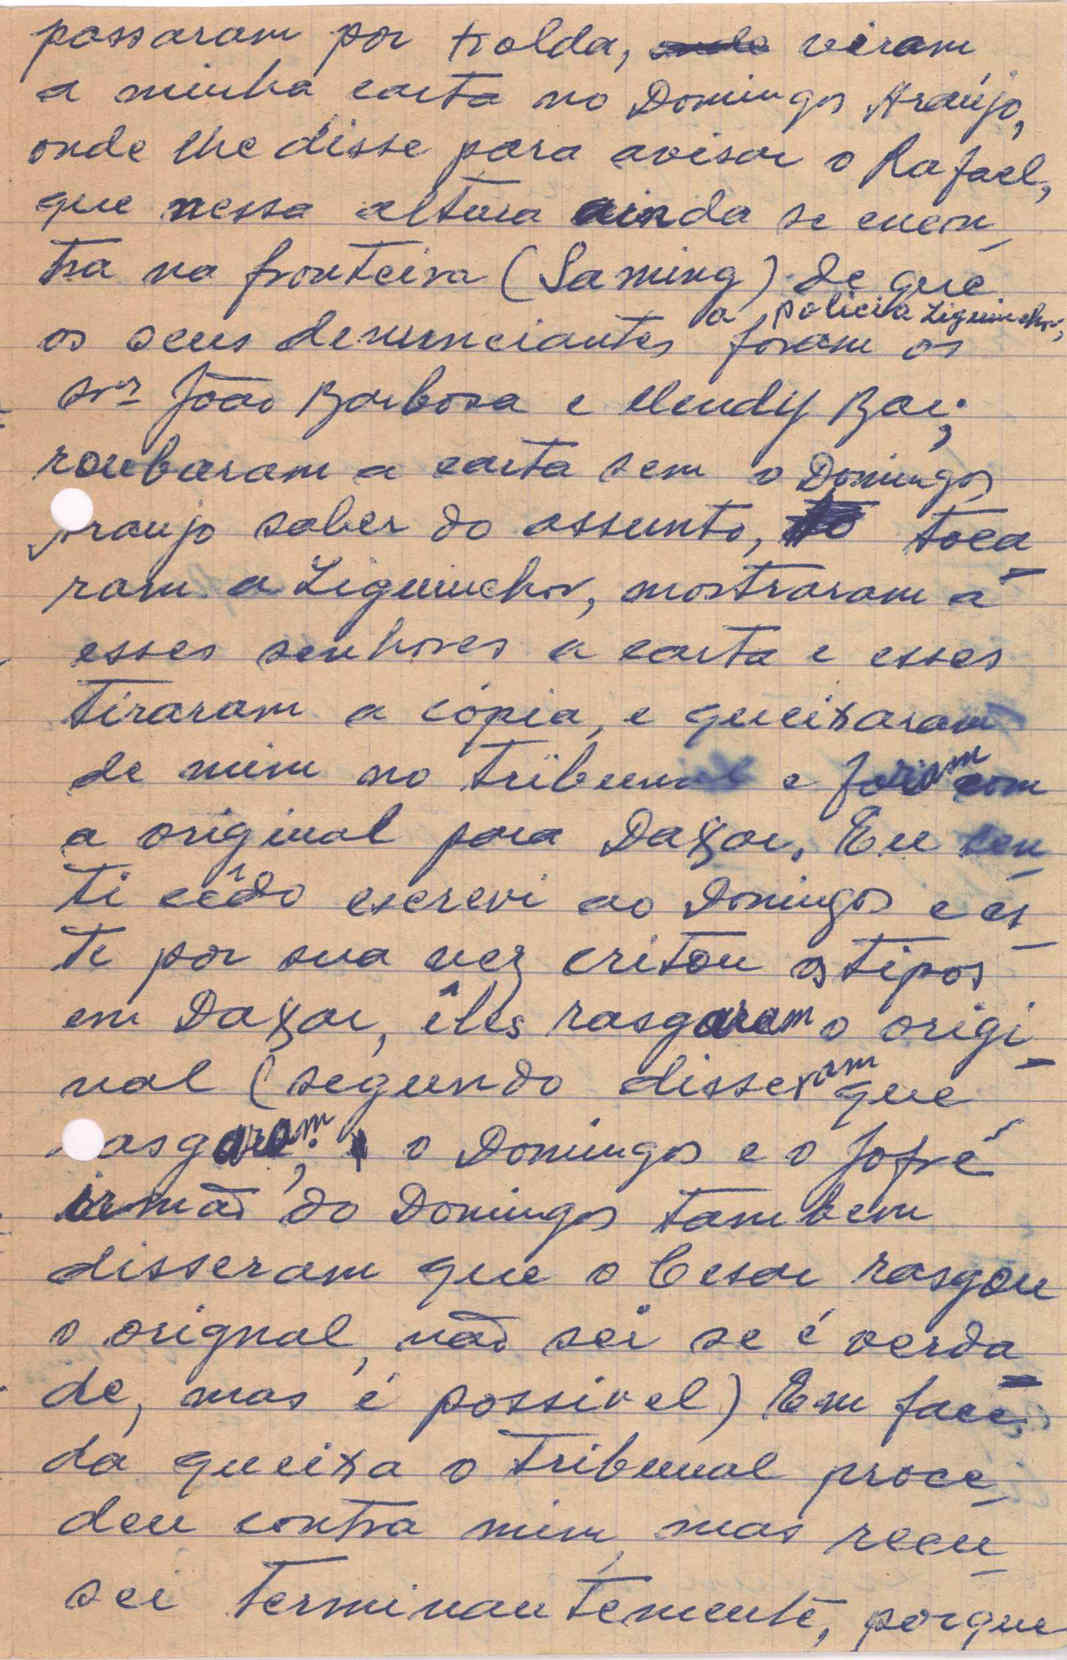 passaram por Kolda, viram
a minha carta no Domingos Araújo,
onde lhe disse para avisar o Rafael,
que nessa altura ainda se encon_
tra na fronteira (Saming) de que
os seus denunciantes a policia Ziguinchor, foram os
snrs João Barbosa e Mendy Bar;
roubaram a carta sem o Domingos
Araujo saber do assunto, toca_
ram a Ziguinchor, mostraram a
esses senhores a carta e esses
tiraram a cópia, e queixaram
de mim no tribunal e foram com
a original para Daxar. Eu sen_
ti cêdo escrevi ao Domingos e es_
te por sua vez critou os tipos
em Daxar, êles rasgaram o origi_
nal (segundo disseram que
rasgaram; o Domingos e o Jofré
irmão do Domingos tambem
disseram que o Cesar rasgou
o orignal, não sei se é verda_
de, mas é possivel) Em face
da queixa o tribunal proce_
deu contra mim, mas recu_
sei terminantemente, porque